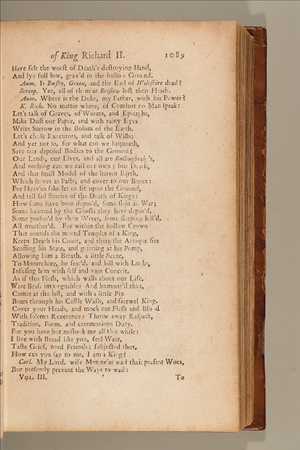 of King Richard II. 1089
Have felt the worst of Death's destroying Hand,
And lye full low, grav'd in the hollow Ground.
Aum. Is Bushy, Green, and the Earl of Wiltshire dead?
Scroop. Yes, all of them at Bristow lost their Heads.
Aum. Where is the Duke, my Father, with his Power?
K. Rich. No matter where, of Comfort no Man speak:
Let's talk of Graves, of Worms, and Epitaphs,
Make Dust our Paper, and with rainy Eyes
Write Sorrow in the Bosom of the Earth.
Let's chuse Executors, and talk of Wills;
And yet not so, for what can we bequeath,
Save our deposed Bodies to the Ground;
Our Lands, our Lives, and all are Bullingbrook's,
And nothing can we call our own; but Death,
And that small Model of the barren Earth,
Which serves as Paste, and cover to our Bones:
For Heav'n's sake let us sit upon the Ground,
And tell sad Stories of the Death of Kings:
How some have been depos'd, some slain in War;
Some haunted by the Ghosts they have depos'd,
Some poyson'd by their Wives, some sleeping kill'd,
All murther'd. For within the hollow Crown
That rounds the mortal Temples of a King,
Keeps Death his Court, and there the Antique sits
Scoffing his State, and grinning at his Pomp,
Allowing him a Breath, a little Scene,
To Monarchize, be fear'd, and kill with Looks,
Infusing him with self and vain Conceit,
As if this Flesh, which walls about our Life,
Were Brass impregnable: And humour'd thus,
Comes at the last, and with a little Pin
Boars through his Castle Walls, and farewel King.
Cover your Heads, and mock not Flesh and Blood
With solemn Reverence: Throw away Respect,
Tradition, Form, and ceremonious Duty.
For you have but mistook me all this while:
I live with Bread like you, feel Want,
Taste Grief, need Friends: subjected thus,
How can you say to me, I am a King?
Carl. My Lord, wise Men ne'er wail their present Woes,
But presently prevent the Ways to wail:
VOL. III. To